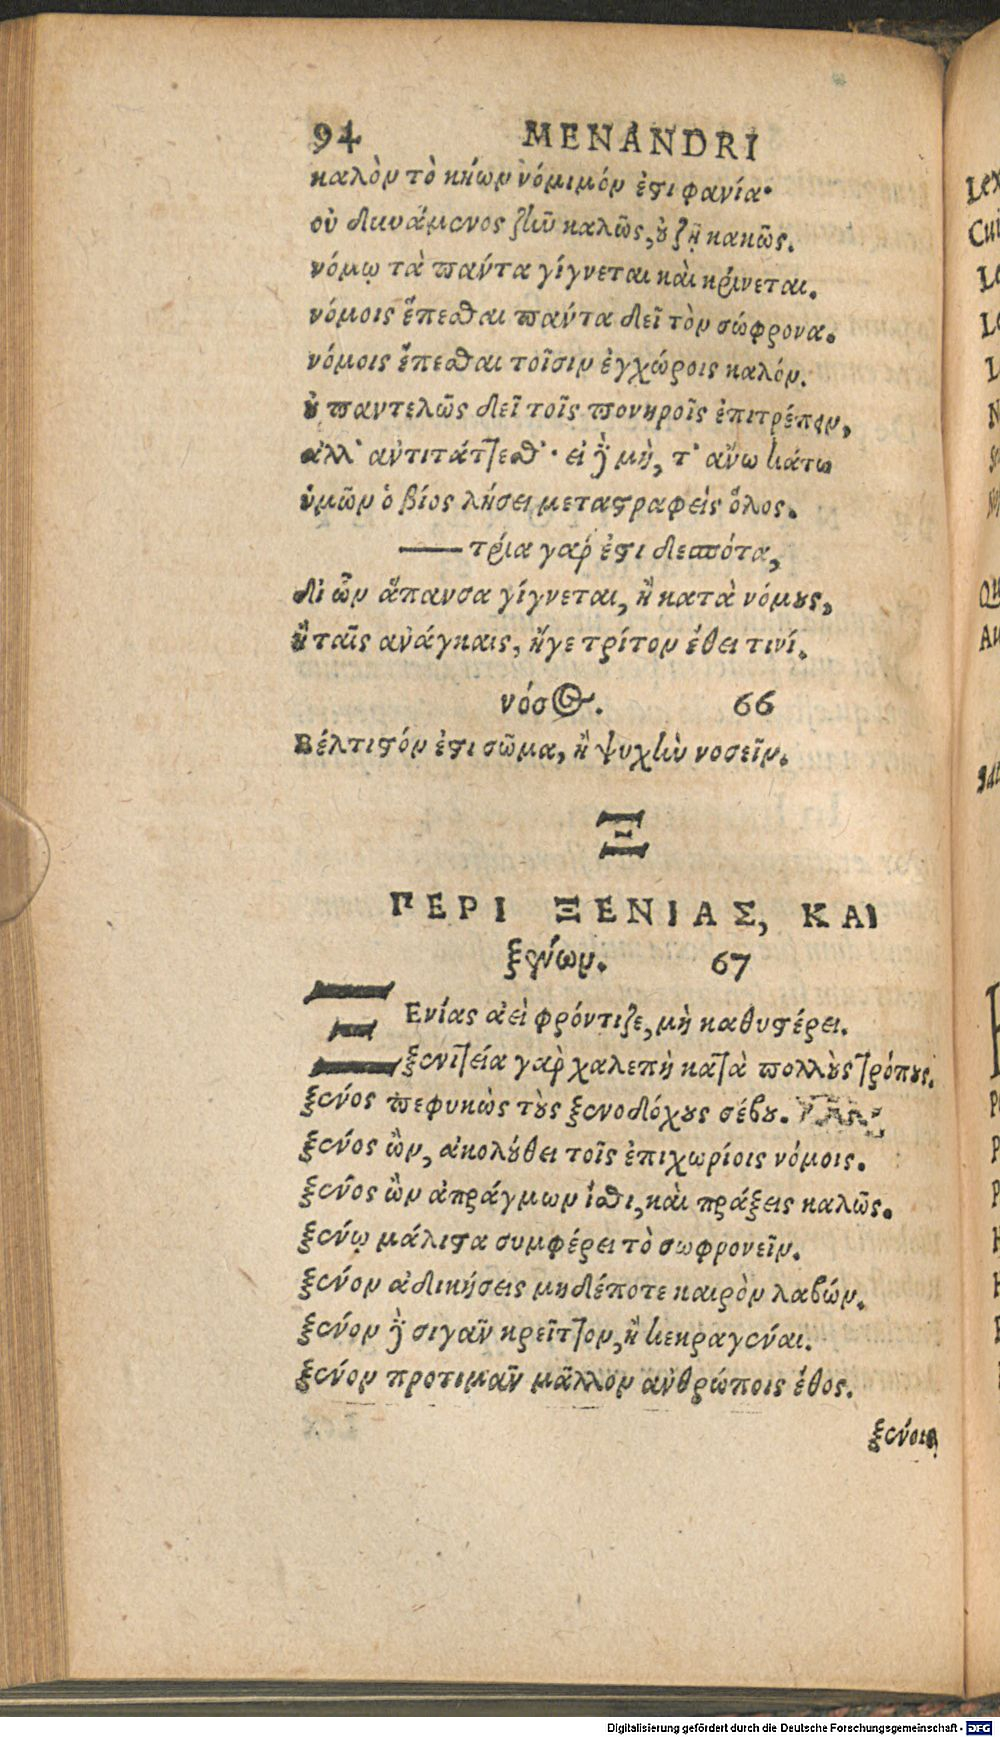 94 MENANDRI
καλὸν τὸ κἠων νόμιμόν ἐστι φανία·
οὐ δυνάμενος ζῆν καλῶς, οὐ ζῇ κακῶς.
νόμῳ τὰ πάντα γίγνεται καὶ κρίνεται.
νόμοις ἕπεσθαι πάντα δεῖ τὸν σώφρονα.
νόμοις ἕπεσθαι τοῖσιν ἐγχώροις καλόν.
οὐ παντελῶς δεῖ τοῖς πονηροῖς ἐπιτρέπειν,
ἀλλ' ἀντιτάττεσθ'· εἰ δὲ μὴ, τ' ἄνω κάτω
ὑμῶν ὁ βίος λήσει μεταστραφεὶς ὅλος.
— τρία γάρ ἐστι δεσπότα,
δι ὧν ἅπανσα γίγνεται, ἢ κατὰ νόμους,
ἢ ταῖς ἀνάγκαις, ἤγε τρίτον ἔθει τινί.
νόσος. 66
Βέλτιστόν ἐστι σῶμα, ἢ ψυχὴν νοσεῖν.
Ξ
ΠΕΡΙ ΞΕΝΙΑΣ, ΚΑΙ
ξένων. 67
ΞΕνίας ἀεὶ φρόντιζε, μὴ καθυστέρει.
ξενιτεία γὰρ χαλεπὴ κατὰ πολλοὺς τρόπους.
ξένος πεφυκὼς τοὺς ξενοδόχους σέβου.
ξένος ὢν, ἀκολούθει τοῖς ἐπιχωρίοις νόμοις.
ξένος ὢν ἀπράγμων ἴσθι, καὶ πράξεις καλῶς.
ξένῳ μάλιστα συμφέρει τὸ σωφρονεῖν.
ξένον ἀδικήσεις μηδέποτε καιρὸν λαβών.
ξένον δὲ σιγᾶν κρεῖττον, ἢ κεκραγέναι.
ξένον προτιμᾶν μᾶλλον ἀνθρώποις ἔθος.
ξένοις
Lex
Cui
Digitalisierung gefördert durch die Deutsche Forschungsgemeinschaft - DFG